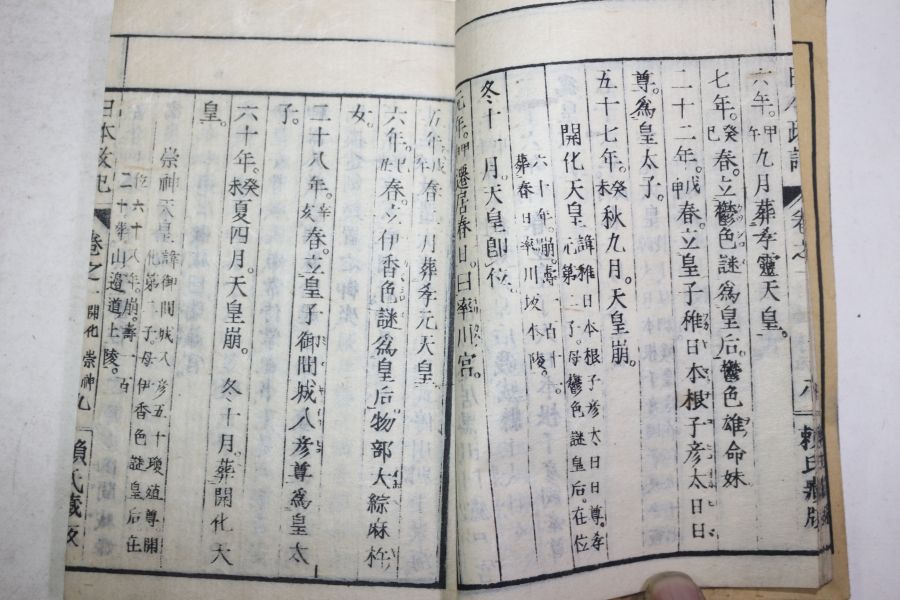 六年。甲午九月葬孝靈天皇。
七年。癸巳春。立鬱色謎爲皇后。鬱色雄命妹
二十二年。戊申春。立皇子稚日本根子彦太日日
尊。爲皇太子。
五十七年。癸未秋九月。天皇崩。
開化天皇 諱稚日本根子彦太日日尊。孝
元第二子。母鬱色謎皇后。在位
六十年。崩。壽一百十
葬春日率川坂本陵。
冬十一月。天皇即位。
元年。甲申遷居春日。曰率川宮。
五年。戊子春二月葬孝元天皇
六年。己丑春。立伊香色謎爲皇后。物部大綜麻杵
女。
二十八年。辛亥春。立皇子御間城入彦尊。爲皇太
子。
六十年。癸未夏四月。天皇崩。冬十月。葬開化天
皇。
崇神天皇 諱御間城入彦五十瓊殖尊。開
化第二子。母伊香色謎皇后在
位六十八年。崩。壽一百
二十。葬山邊道上陵。
日本政記 卷之一 開化 崇神 九 賴氏藏版